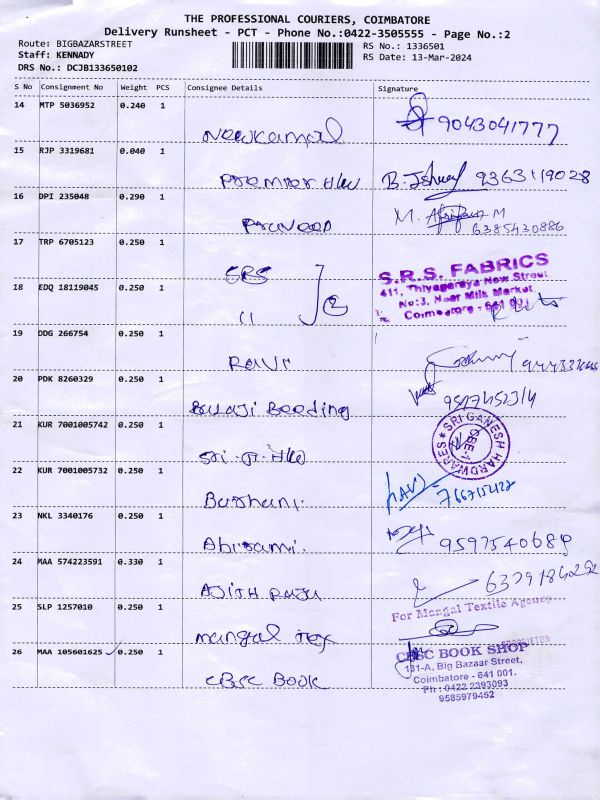 THE PROFESSIONAL COURIERS, COIMBATORE
Delivery Runsheet - PCT - Phone No.:0422-3505555 - Page No.:2
Route: BIGBAZARSTREET
Staff: KENNADY
DRS No.: DCJB133650102
RS No.: 1336501
RS Date: 13-Mar-2024
S No Consignment No Weight PCS Consignee Details Signature
14 MTP 5036952 0.240 1
Newkamal 9043041777
15 RJP 3319681 0.040 1
Premier H/w 9363119028
16 DPI 235048 0.290 1
Praveen M. M
6385430886
17 TRP 6705123 0.250 1
SRS
S.R.S. FABRICS
411, Thiyagaraya New Street
No:3, Near Milk Market
Coimbatore - 641 001.
18 EDQ 18119045 0.250 1
11
19 DDG 266754 0.250 1
Ravi
20 PDK 8260329 0.250 1
Balaji Bedding
21 KUR 7001005742 0.250 1
SRI GANESH HARDWARES
CBE-1
Sri. G. H/w
22 KUR 7001005732 0.250 1
Barhani.
23 NKL 3340176 0.250 1
Abirami. 9597540689
24 MAA 574223591 0.330 1
Ajith Raja
25 SLP 1257010 0.250 1
For Mangal Textile Agency
Mangal Tex
PROPRIETOR
26 MAA 105601625 0.250 1
CBSC Book
CBSC BOOK SHOP
131-A, Big Bazaar Street,
Coimbatore - 641 001.
Ph : 0422 2393093
9585979452